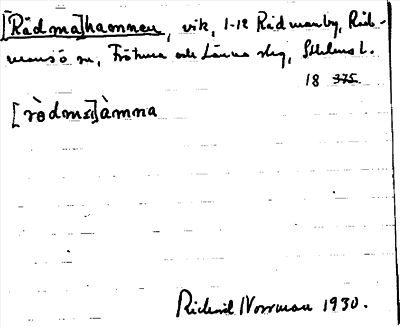 [Rådma]hamnen, vik, 1-12 Rådmanby, Råd-
mansö sn, Frötuna och Länna slg, Sthlms l.
18 375
[rò̀dma]àmna
Rickard Norrman 1930.